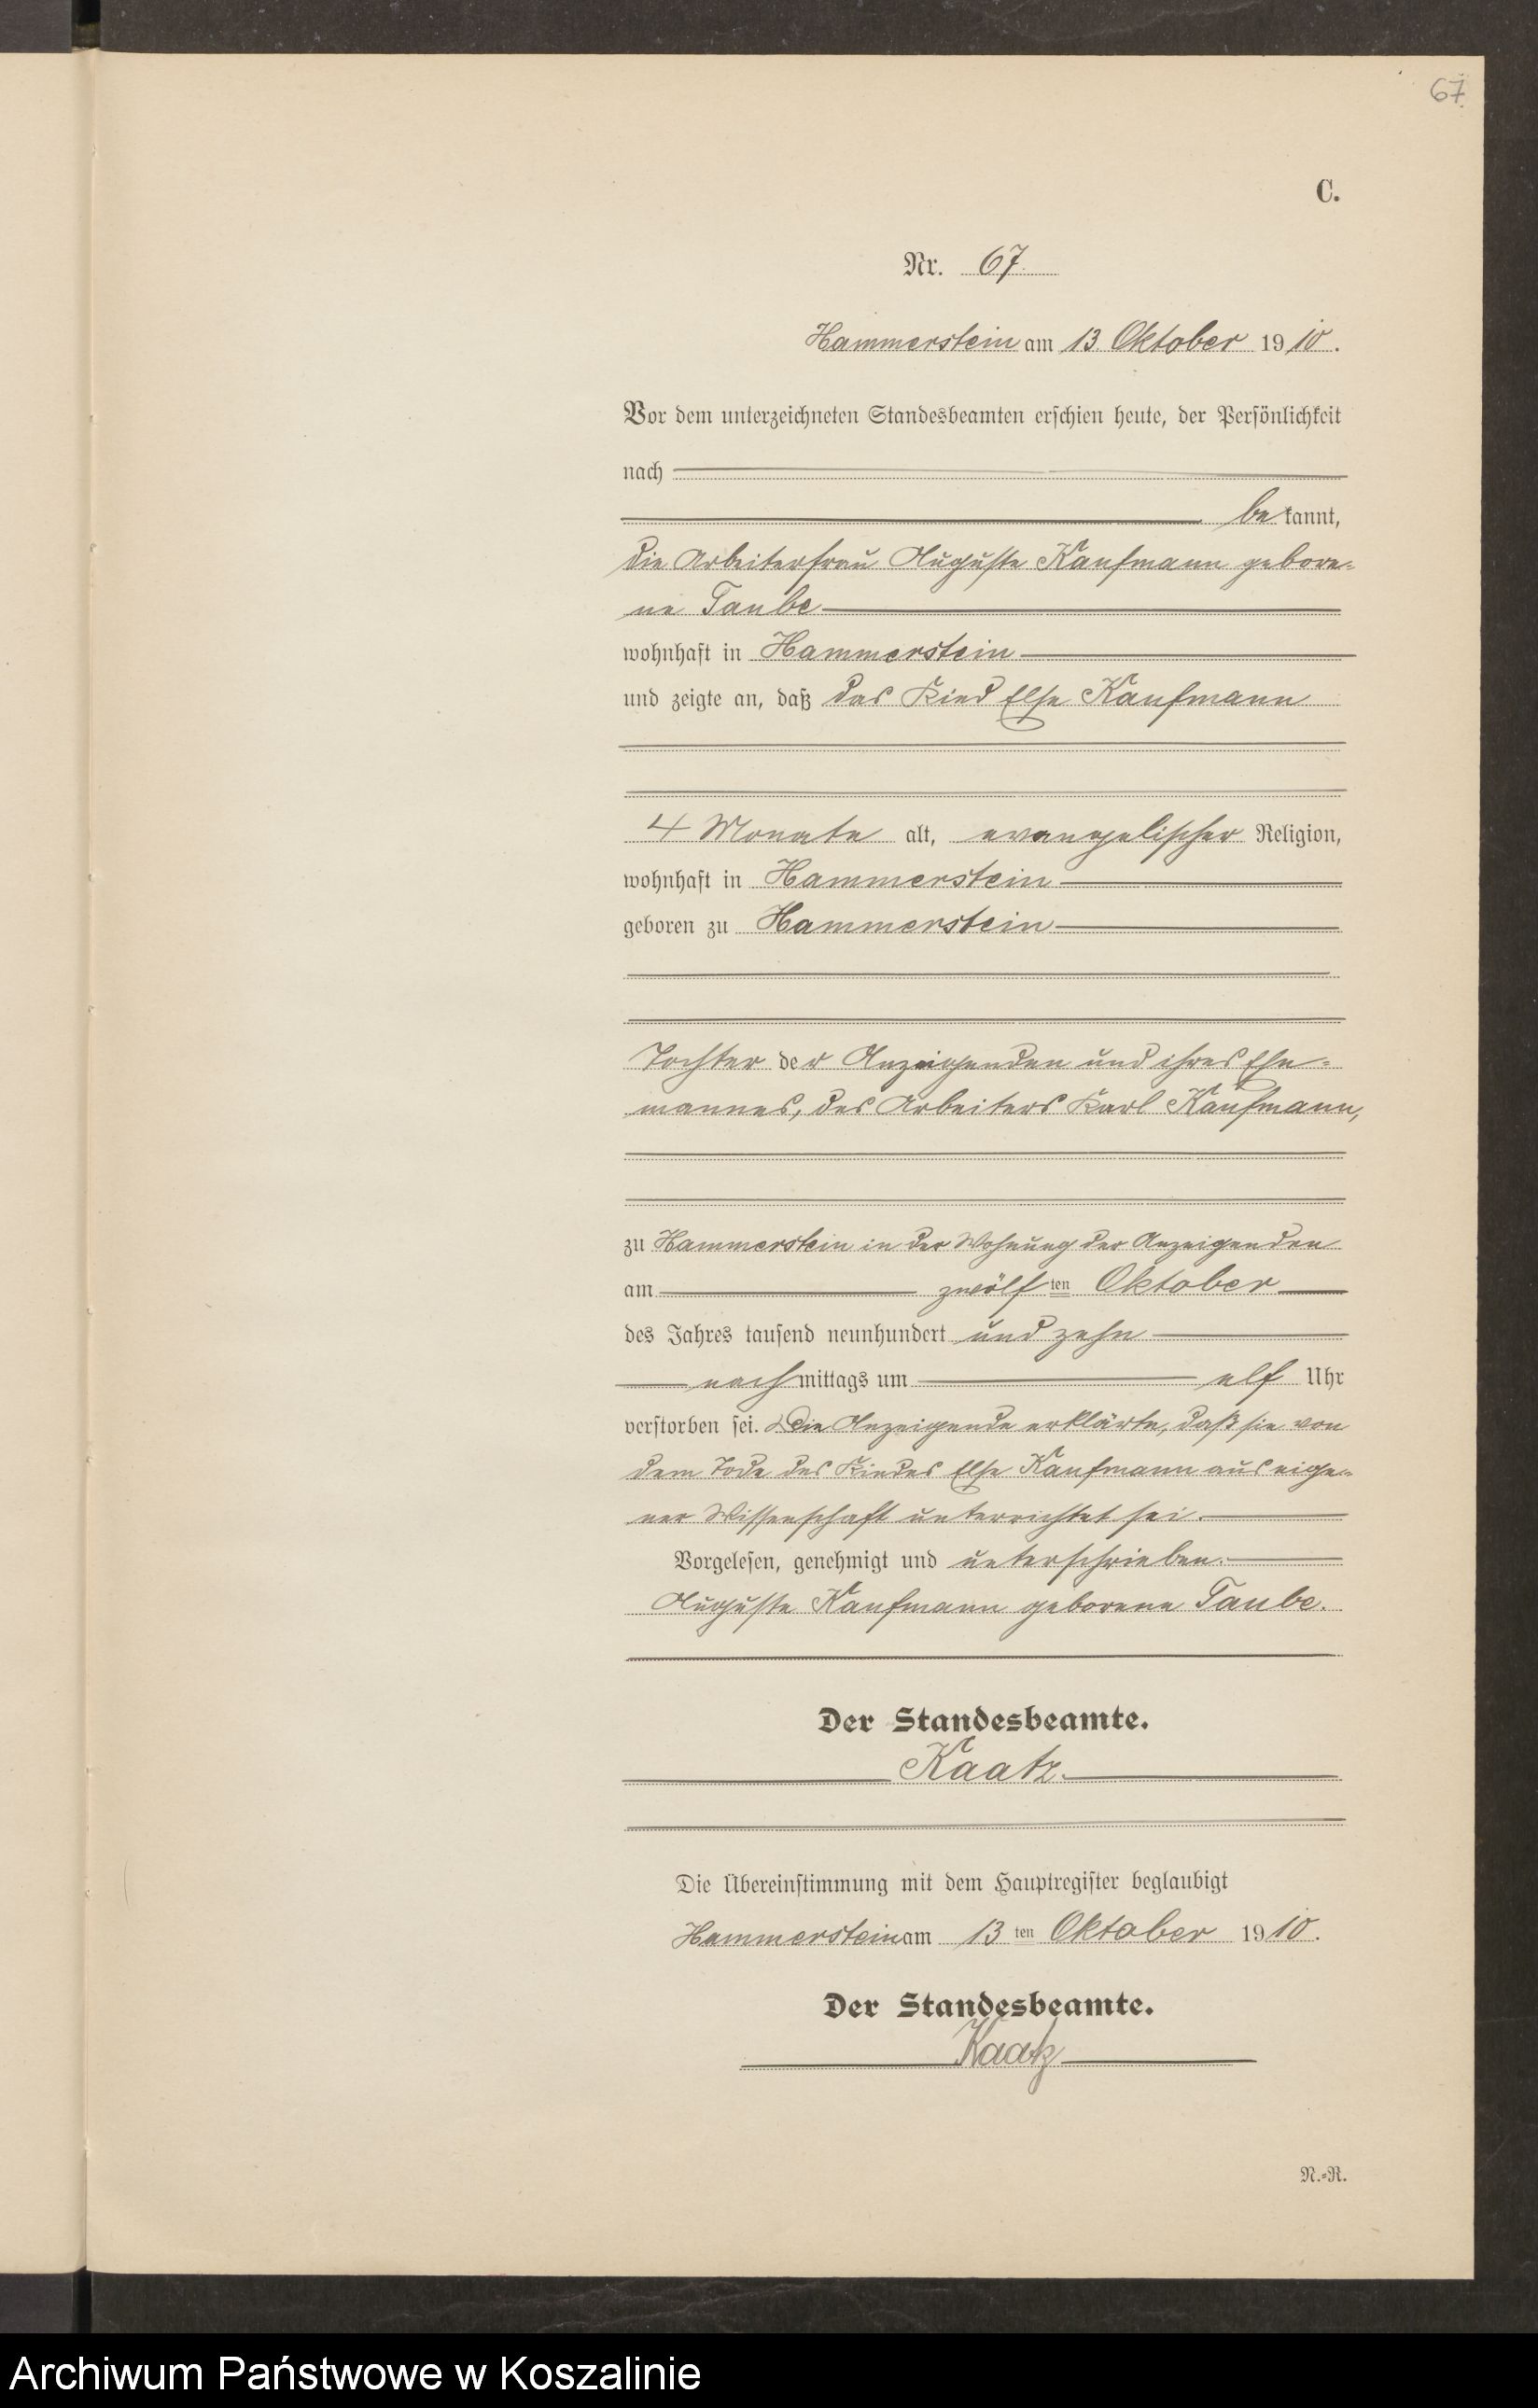 67
C.
Nr. 67.
Hammerstein am 13. Oktober 1910.
Vor dem unterzeichneten Standesbeamten erschien heute, der Persönlichkeit
nach
bekannt,
die Arbeiterfrau Auguste Kaufmann gebore-
ne Taube
wohnhaft in Hammerstein
und zeigte an, daß das Kind Else Kaufmann
4 Monate alt, evangelischer Religion,
wohnhaft in Hammerstein
geboren zu Hammerstein
Tochter der Anzeigenden und ihres Ehe-
mannes, des Arbeiters Karl Kaufmann,
zu Hammerstein in der Wohnung der Anzeigenden
am zwölften Oktober
des Jahres tausend neunhundert und zehn
nachmittags um elf Uhr
verstorben sei. Die Anzeigende erklärte, daß sie von
dem Tode des Kindes Else Kaufmann aus eige-
ner Wissenschaft unterrichtet sei.
Vorgelesen, genehmigt und unterschrieben.
Auguste Kaufmann geborene Taube.
Der Standesbeamte.
Kaatz
Die Übereinstimmung mit dem Hauptregister beglaubigt
Hammerstein am 13ten Oktober 1910.
Der Standesbeamte.
Kaatz
N.-R.
Archiwum Państwowe w Koszalinie